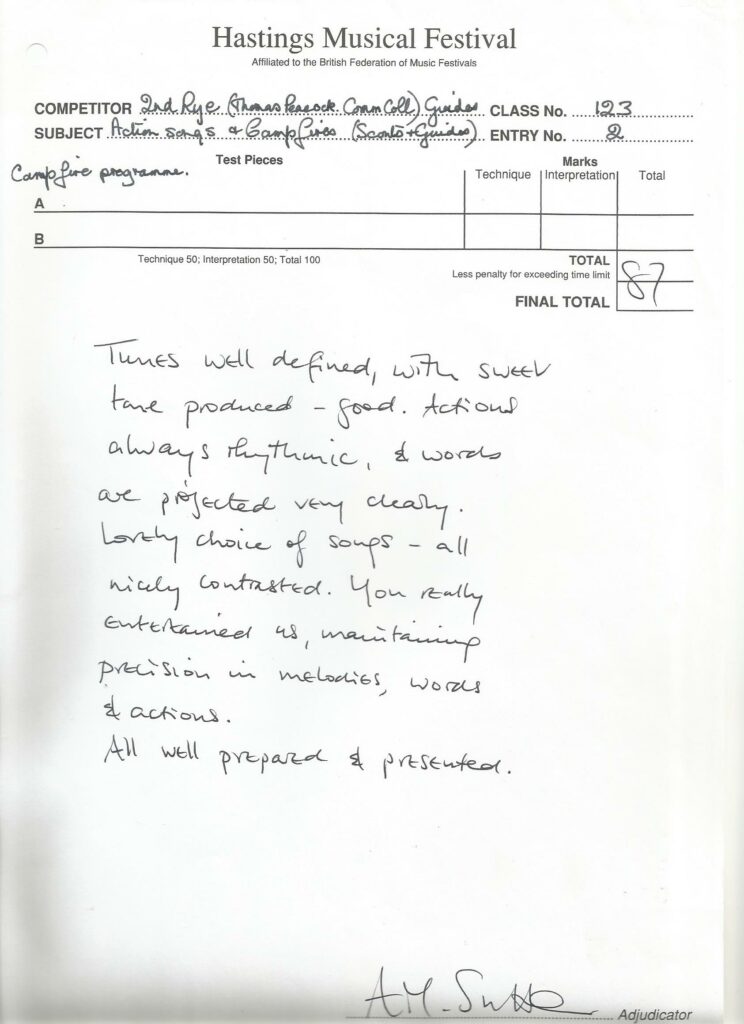 Hastings Musical Festival
Affiliated to the British Federation of Music Festivals
COMPETITOR 2nd Rye (Thomas Peacock. Comm Coll) Guides CLASS No. 123
SUBJECT Action songs & Campfires (Scouts + Guides) ENTRY No. 2
Test Pieces Marks
Campfire programme. Technique Interpretation Total
A
B
Technique 50; Interpretation 50; Total 100 TOTAL
Less penalty for exceeding time limit 87
FINAL TOTAL
Tunes well defined, with sweet
tone produced – good. Actions
always rhythmic, & words
are projected very clearly.
Lovely choice of songs – all
nicely contrasted. You really
entertained us, maintaining
precision in melodies, words
& actions.
All well prepared & presented.
A.M.
Adjudicator